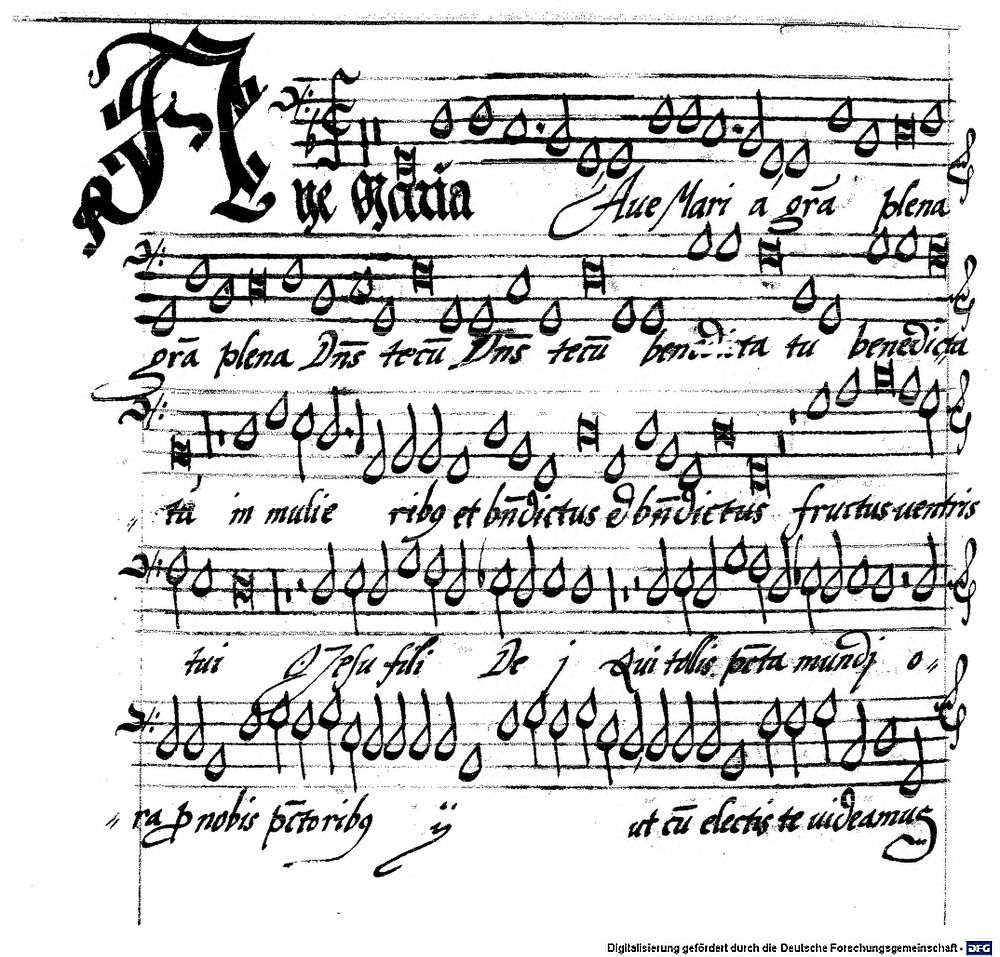 Aue Maria Aue Mari a grā plena
grā plena Dn̄s tecū Dn̄s tecū benedicta tu benedicta
tu in mulie ribꝯ et bn̄dictus et bn̄dictus fructus uentris
tui O Jesu fili De j Qui tollis pc̄ta mundj o„
„ra p nobis pc̄toribꝯ ij ut cū electis te uideamus
Digitalisierung gefördert durch die Deutsche Forschungsgemeinschaft - DFG